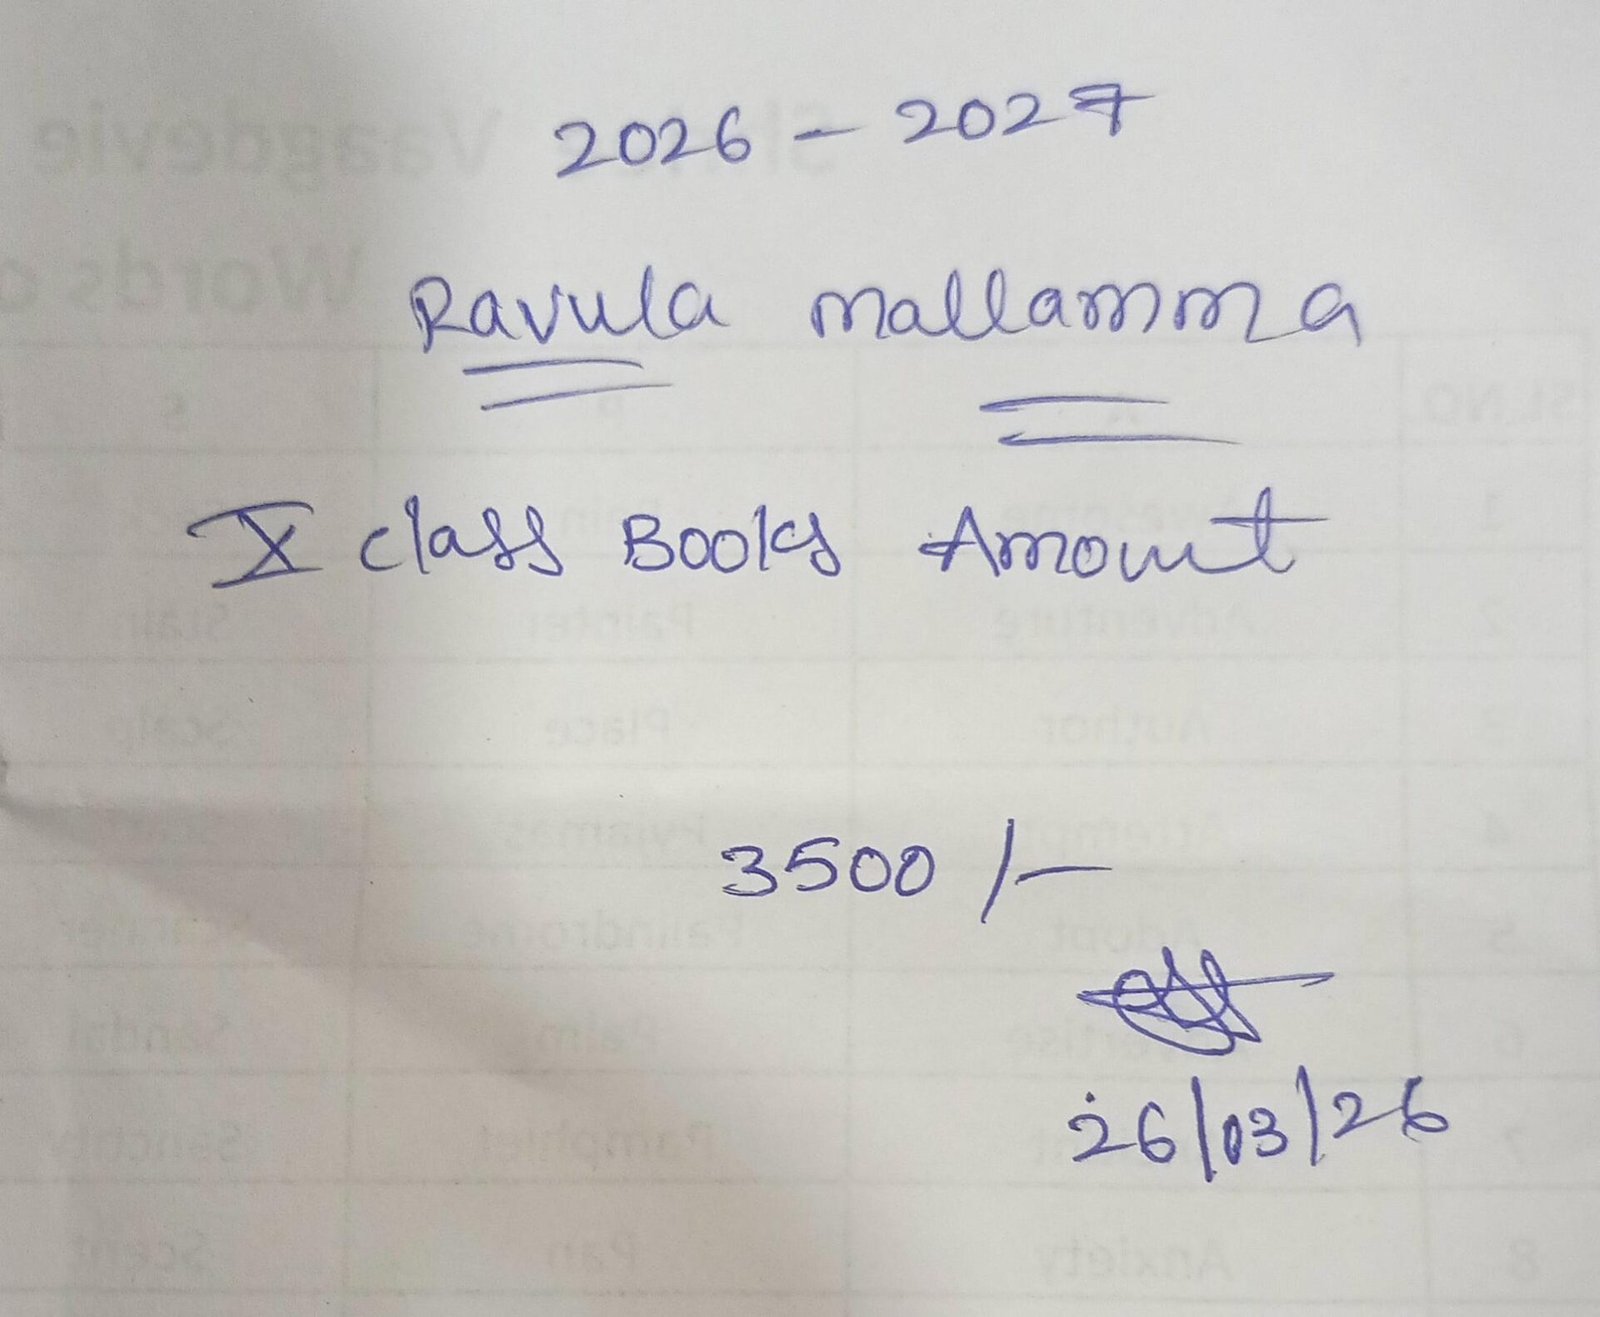 2026 - 2027
Ravula mallamma
X class Books Amount
3500 /-
26/03/26